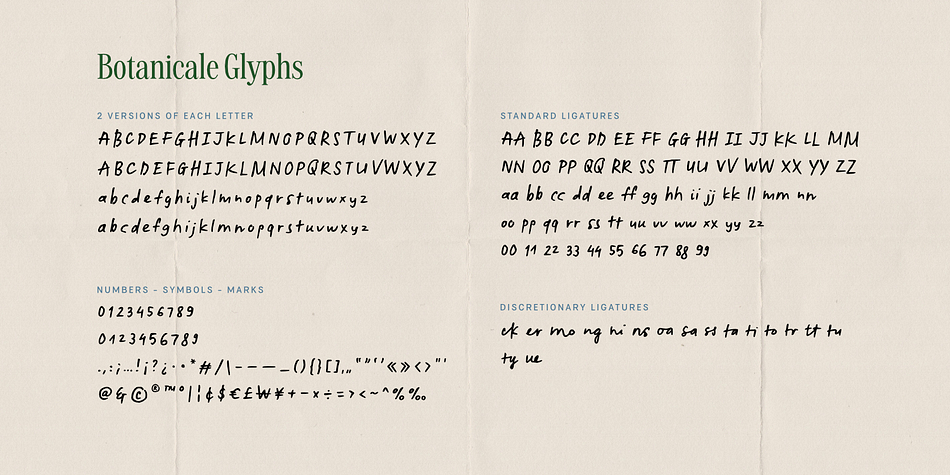 Botanicale Glyphs
2 VERSIONS OF EACH LETTER
ABCDEFGHIJKLMNOPQRSTUVWXYZ
ABCDEFGHIJKLMNOPQRSTUVWXYZ
abcdefghijklmnopqrstuvwxyz
abcdefghijklmnopqrstuvwxyz
NUMBERS - SYMBOLS - MARKS
0123456789
0123456789
.,:;...!¡?¿··*#/\-–—_(){}[]‚„“”‘’«»‹›"'
@&©®™°|¦¢$€£₩¥+−×÷=><~^%‰
STANDARD LIGATURES
AA BB CC DD EE FF GG HH II JJ KK LL MM
NN OO PP QQ RR SS TT UU VV WW XX YY ZZ
aa bb cc dd ee ff gg hh ii jj kk ll mm nn
oo pp qq rr ss tt uu vv ww xx yy zz
00 11 22 33 44 55 66 77 88 99
DISCRETIONARY LIGATURES
ck er mo ng ni ns oa sa ss ta ti to tr tt tu
ty ue